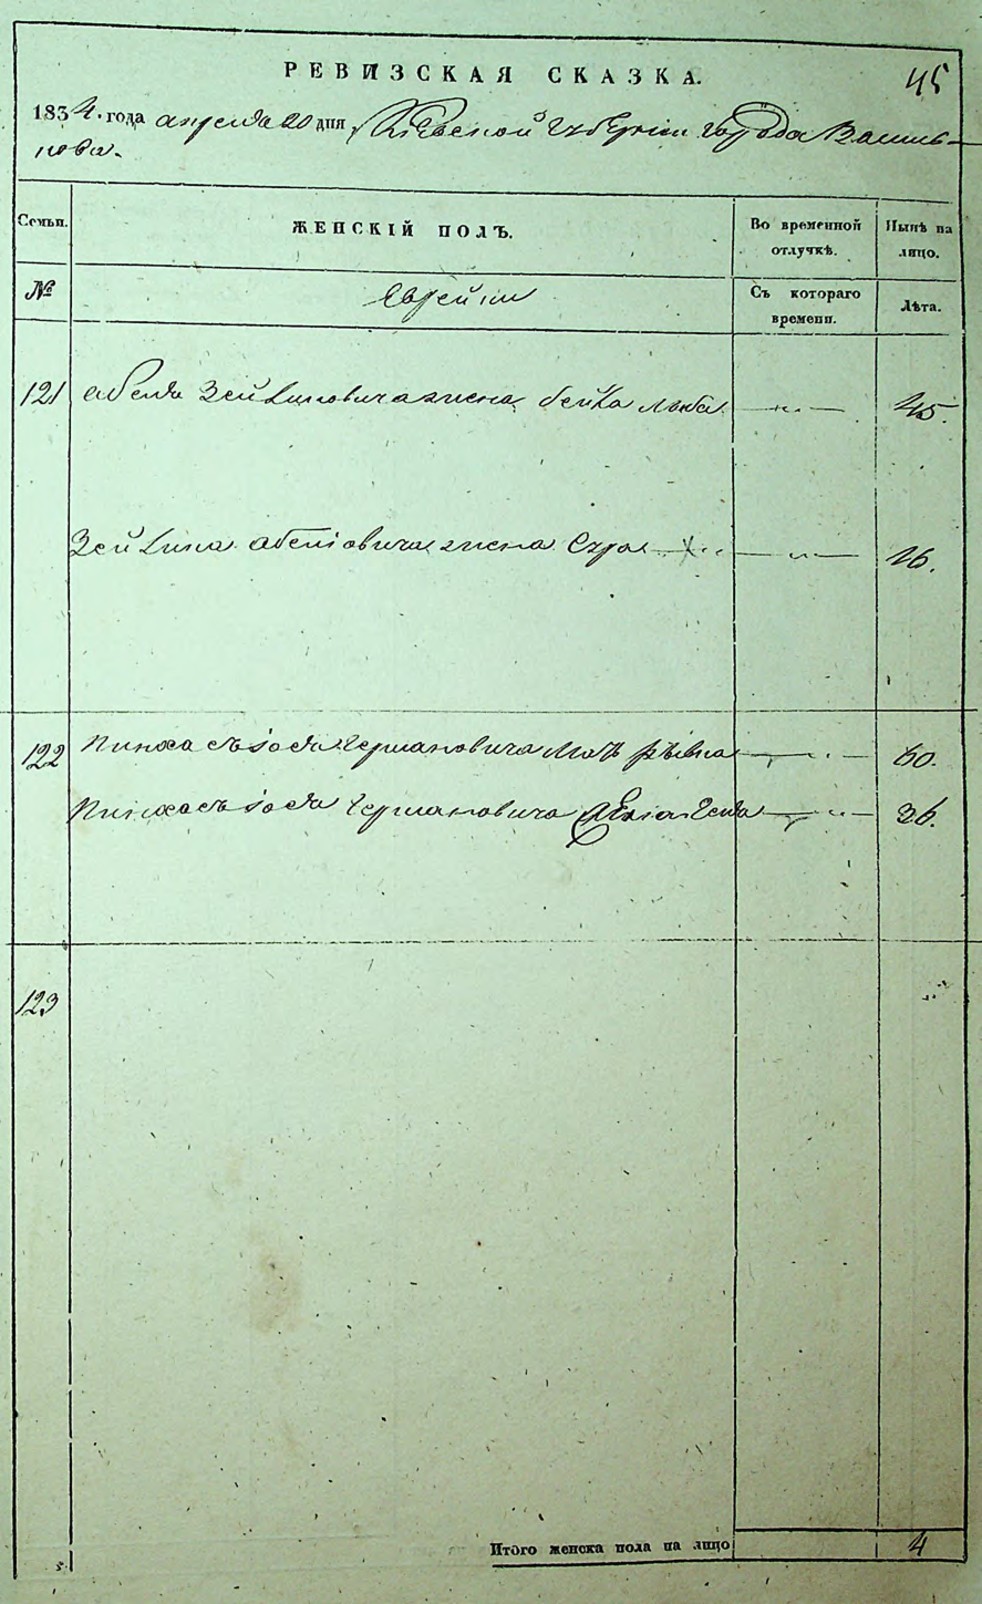 РЕВИЗСКАЯ СКАЗКА. 45
1834. года апреля 20 дня Киевской Губернии города Василь-
кова.
Семьи. ЖЕНСКІЙ ПОЛЪ. Во временной отлучкѣ. Нынѣ на лицо.
№ Еврейки Съ котораго времени. Лѣта.
121 Абеля Зейликовича жена Бейла 45.
Зейлика Абеліовича жена Сура 26.
122 Пинхасъ іося Германовича 60.
Пинхасъ іося Германовича 36.
123
Итого женска пола на лицо 4